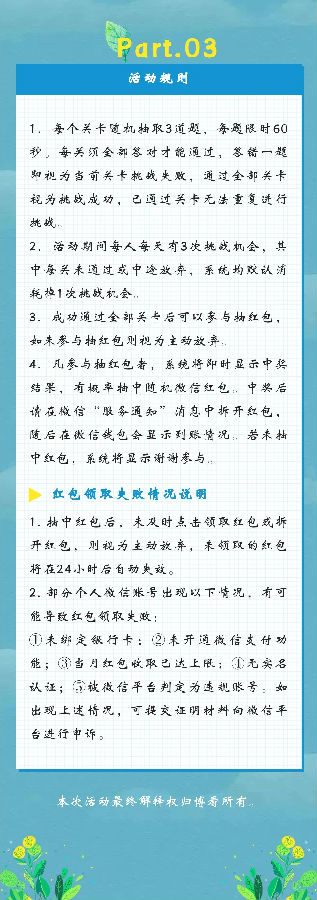 Part.03
活动规则
1. 每个关卡随机抽取3道题，每题限时60
秒。每关须全部答对才能通过，答错一题
即视为当前关卡挑战失败，通过全部关卡
视为挑战成功，已通过关卡无法重复进行
挑战。
2. 活动期间每人每天有3次挑战机会，其
中每关未通过或中途放弃，系统均默认消
耗掉1次挑战机会。
3. 成功通过全部关卡后可以参与抽红包，
如未参与抽红包则视为主动放弃。
4. 凡参与抽红包者，系统将即时显示中奖
结果，有概率抽中随机微信红包。中奖后
请在微信“服务通知”消息中拆开红包，
随后在微信钱包会显示到账情况。若未抽
中红包，系统将显示谢谢参与。
红包领取失败情况说明
1. 抽中红包后，未及时点击领取红包或拆
开红包，则视为主动放弃，未领取的红包
将在24小时后自动失效。
2. 部分个人微信账号出现以下情况，有可
能导致红包领取失败：
①未绑定银行卡；②未开通微信支付功
能；③当月红包收取已达上限；④无实名
认证；⑤被微信平台判定为违规账号。如
出现上述情况，可提交证明材料向微信平
台进行申诉。
本次活动最终解释权归博看所有。